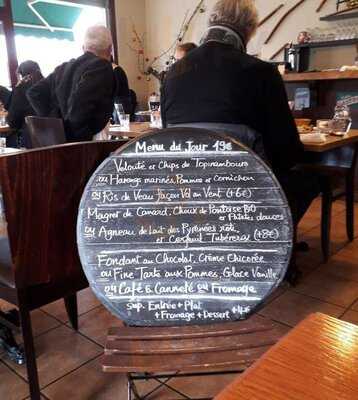 Menu du Jour 19€
Velouté et Chips de Topinambours
ou Harengs marinés, Pommes et Cornichon
ou Ris de Veau façon Vol au Vent (+6€)
Magret de Canard, Choux de Pontoise BIO
et Patates douces
ou Agneau de Lait des Pyrénées rôti,
et Confit Tubéreux (+8€)
Fondant au Chocolat, Crème Chicorée
ou Fine Tarte aux Pommes, Glace Vanille
ou Café & Cannelé ou Fromage
sup. Entrée + Plat
+ Fromage + Dessert +4€